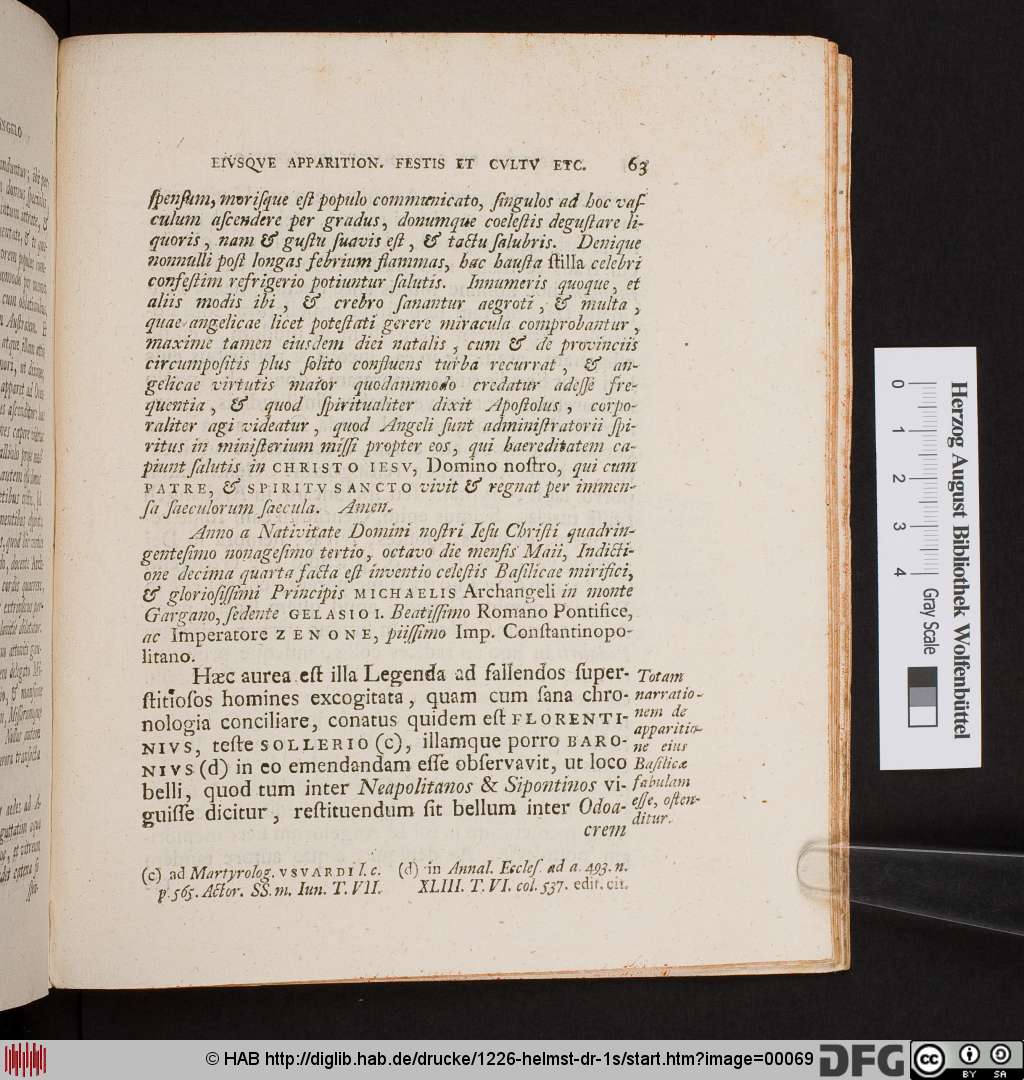 EIVSQVE APPARITION. FESTIS ET CVLTV ETC. 63
ſpenſum, moriſque eſt populo communicato, ſingulos ad hoc vaſ
culum aſcendere per gradus, donumque coeleſtis deguſtare li-
quoris, nam & guſtu ſuavis eſt, & tactu ſalubris. Denique
nonnulli poſt longas febrium flammas, hac hauſta ſtilla celebri
confeſtim refrigerio potiuntur ſalutis. Innumeris quoque, et
aliis modis ibi, & crebro ſanantur aegroti, & multa,
quae angelicae licet poteſtati gerere miracula comprobantur,
maxime tamen eiusdem diei natalis, cum & de provinciis
circumpoſitis plus ſolito confluens turba recurrat, & an-
gelicae virtutis maior quodammodo credatur adeſſe fre-
quentia, & quod ſpiritualiter dixit Apoſtolus, corpo-
raliter agi videatur, quod Angeli ſunt adminiſtratorii ſpi-
ritus in miniſterium miſſi propter eos, qui haereditatem ca-
piunt ſalutis in CHRISTO IESV, Domino noſtro, qui cum
PATRE, & SPIRITV SANCTO vivit & regnat per immen-
ſa ſaeculorum ſaecula. Amen.
Anno a Nativitate Domini noſtri Ieſu Chriſti quadrin-
genteſimo nonageſimo tertio, octavo die menſis Maii, Indicti-
one decima quarta facta eſt inventio celeſtis Baſilicae mirifici,
& glorioſiſſimi Principis MICHAELIS Archangeli in monte
Gargano, ſedente GELASIO I. Beatiſſimo Romano Pontifice,
ac Imperatore ZENONE, piiſſimo Imp. Conſtantinopo-
litano.
Hæc aurea eſt illa Legenda ad fallendos ſuper-
ſtitioſos homines excogitata, quam cum ſana chro-
nologia conciliare, conatus quidem eſt FLORENTI-
NIVS, teſte SOLLERIO (c), illamque porro BARO-
NIVS (d) in eo emendandam eſſe obſervavit, ut loco
belli, quod tum inter Neapolitanos & Sipontinos vi-
guiſſe dicitur, reſtituendum ſit bellum inter Odoa-
crem
Totam
narratio-
nem de
apparitio-
ne eius
Baſilicæ
fabulam
eſſe, oſten-
ditur.
(c) ad Martyrolog. VSVARDI l. c.
p. 565. Actor. SS. m. Iun. T. VII.
(d) in Annal. Eccleſ. ad a. 493. n.
XLIII. T. VI. col. 537. edit. cit.
Herzog August Bibliothek Wolfenbüttel
0 1 2 3 4 Gray Scale
© HAB http://diglib.hab.de/drucke/1226-helmst-dr-1s/start.htm?image=00069
DFG
cc BY SA